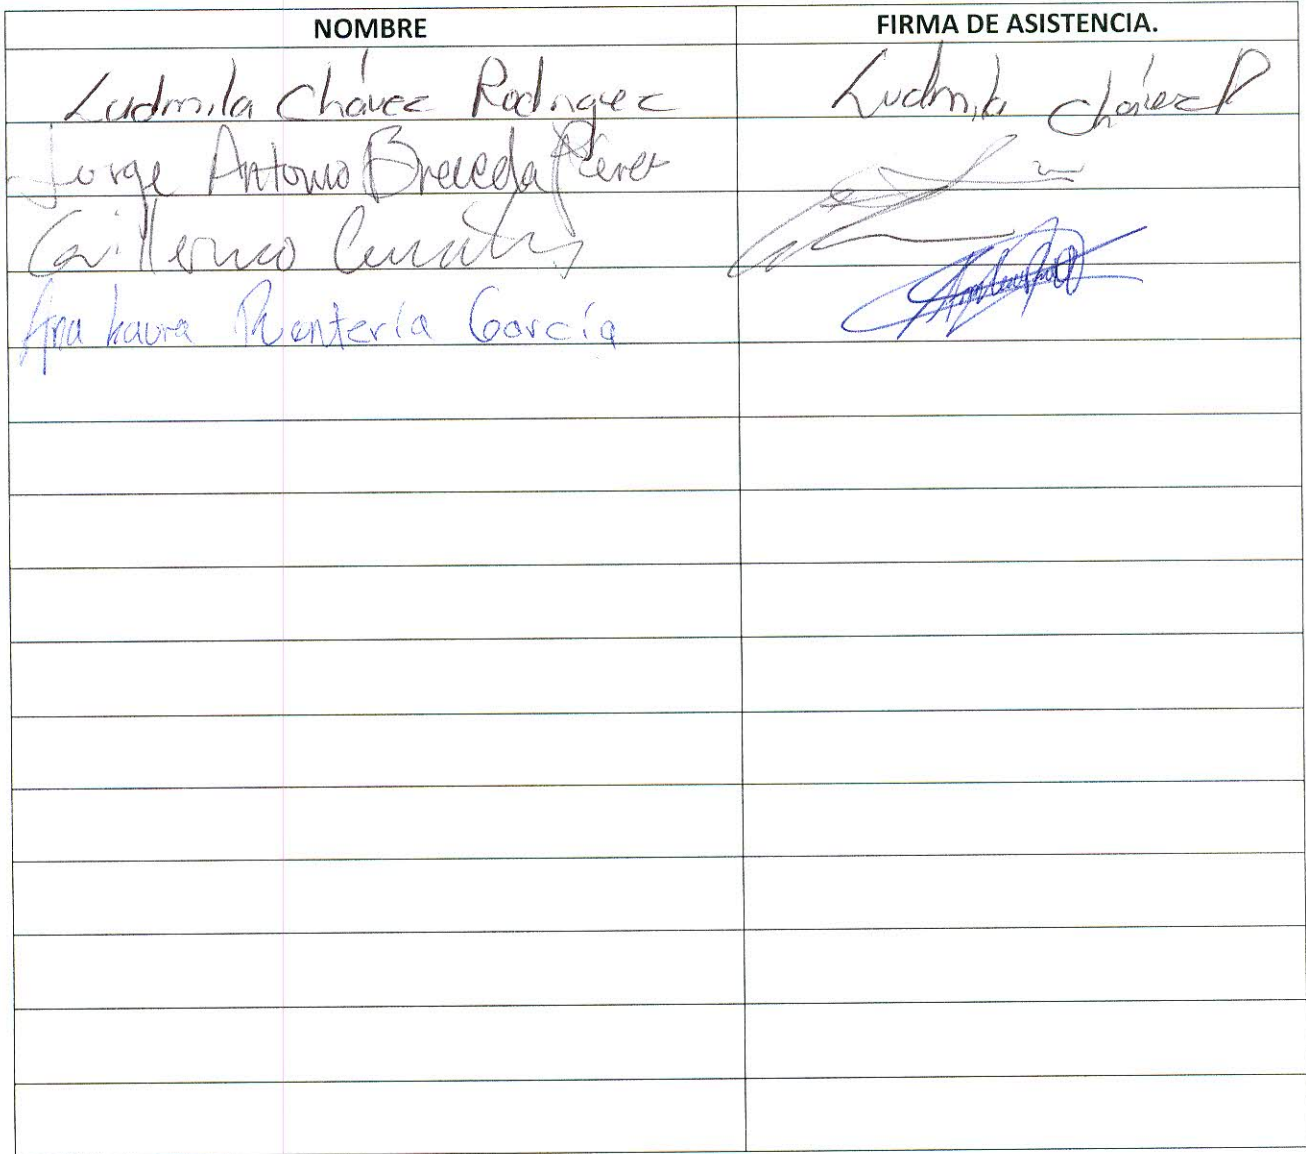 NOMBRE FIRMA DE ASISTENCIA.
Ludmila Chávez Rodriguez Ludmila Chávez R
Jorge Antonio Pérez
Guillermo
Ana Laura Rentería García